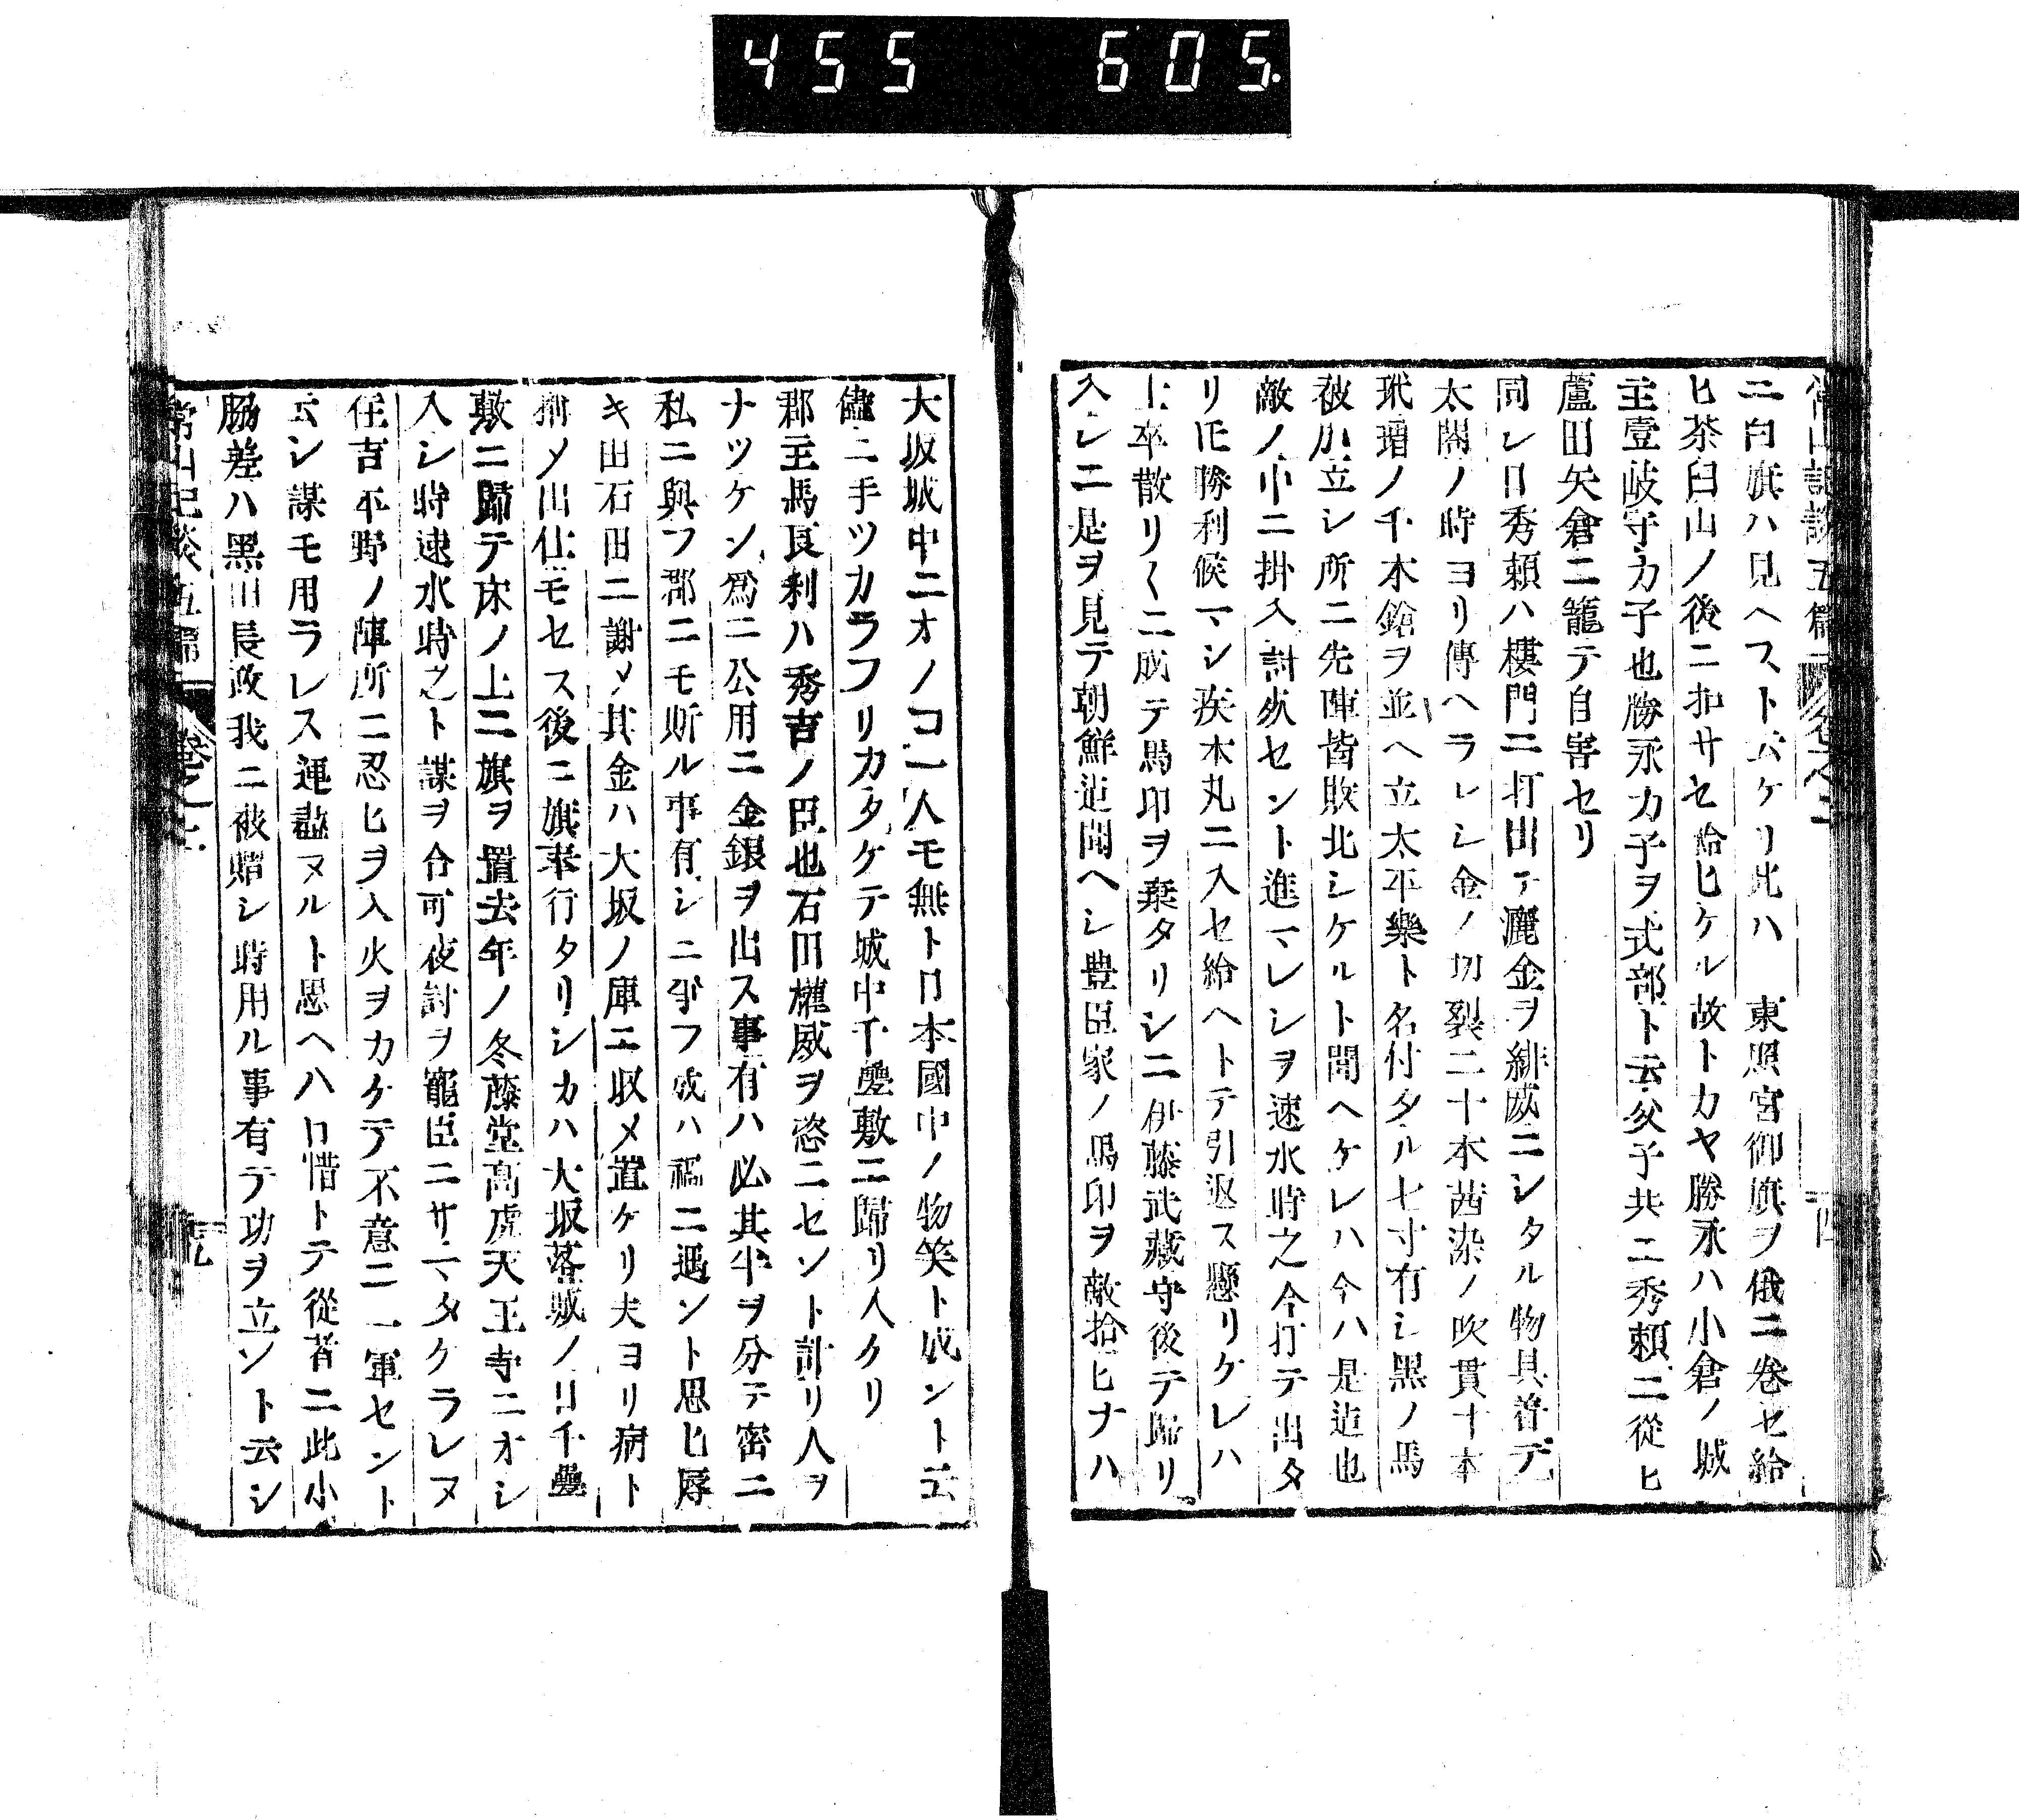 455 605.
ニ白旗ハ見ヘスト云ケリ此ハ　東照宮御旗ヲ俄ニ卷セ給
ヒ茶臼山ノ後ニ扣サセ給ヒケル故トカヤ勝永ハ小倉ノ城
主壹岐守カ子也勝永カ子ヲ式部ト云父子共ニ秀頼ニ從ヒ
蘆田矢倉ニ籠テ自害セリ
同シ日秀頼ハ樓門ニ打出テ灑金ヲ緋威ニシタル物具着テ
太閤ノ時ヨリ傳ヘラレシ金ノ切裂二十本茜染ノ吹貫十本
玳瑁ノ千本鎗ヲ並ヘ立太平樂ト名付タル七寸有シ黑ノ馬
被引立シ所ニ先陣皆敗北シケルト聞ヘケレハ今ハ是迠也
敵ノ中ニ掛入討死セント進マレシヲ速水時之今打テ出タ
リ𪜈勝利候マシ疾本丸ニ入セ給ヘトテ引返ス懸リケレハ
士卒散リ〱ニ成テ馬印ヲ棄タリシニ伊藤武藏守後テ歸リ
入シニ是ヲ見テ朝鮮迠聞ヘシ豊臣家ノ馬印ヲ敵拾ヒナハ
大坂城中ニオノコ一人モ無ト日本國中ノ物笑ト成ント云
儘ニ手ツカラフリカタケテ城中千疊敷ニ歸リ入タリ
郡主馬良利ハ秀吉ノ臣也石田權威ヲ恣ニセント計リ人ヲ
ナツケン爲ニ公用ニ金銀ヲ出ス事有ハ必其半ヲ分テ密ニ
私ニ與フ郡ニモ斯ル事有シニ爭フ成ハ禍ニ遇ント思ヒ辱
キ由石田ニ謝メ其金ハ大坂ノ庫ニ收メ置ケリ夫ヨリ病ト
稱メ出仕モセス後ニ旗奉行タリシカハ大坂落城ノ日千疊
敷ニ歸テ床ノ上ニ旗ヲ置去年ノ冬藤堂高虎天王寺ニオシ
入シ時速水時之ト謀ヲ合可夜討ヲ寵臣ニサマタケラレヌ
住吉平野ノ陣所ニ忍ヒヲ入火ヲカケテ不意ニ一軍セント
云シ謀モ用ラレス運盡ヌルト思ヘハ口惜トテ從者ニ此小
脇差ハ黑田長政我ニ被贈シ時用ル事有テ功ヲ立ント云シ
常山紀談五篇　卷之二